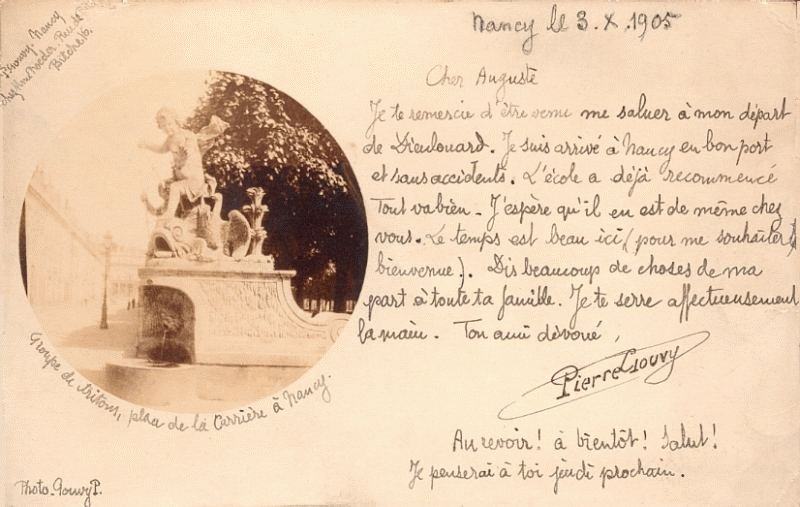 Gouvy. Nancy
Rue de
Bitche 16.
Nancy le 3. X. 1905
Cher Auguste
Je te remercie d'être venu me saluer à mon départ
de Dieulouard. Je suis arrivé à Nancy en bon port
et sans accidents. L'école a déjà recommencé
Tout va bien - J'espère qu'il en est de même chez
vous. Le temps est beau ici (pour me souhaiter la
bienvenue). Dis beaucoup de choses de ma
part à toute ta famille. Je te serre affectueusement
la main. Ton ami dévoué,
Pierre Gouvy
Au revoir! à bientôt! Salut!
Je penserai à toi jeudi prochain.
Groupe de tritons, place de la Carrière à Nancy.
Photo. Gouvy P.